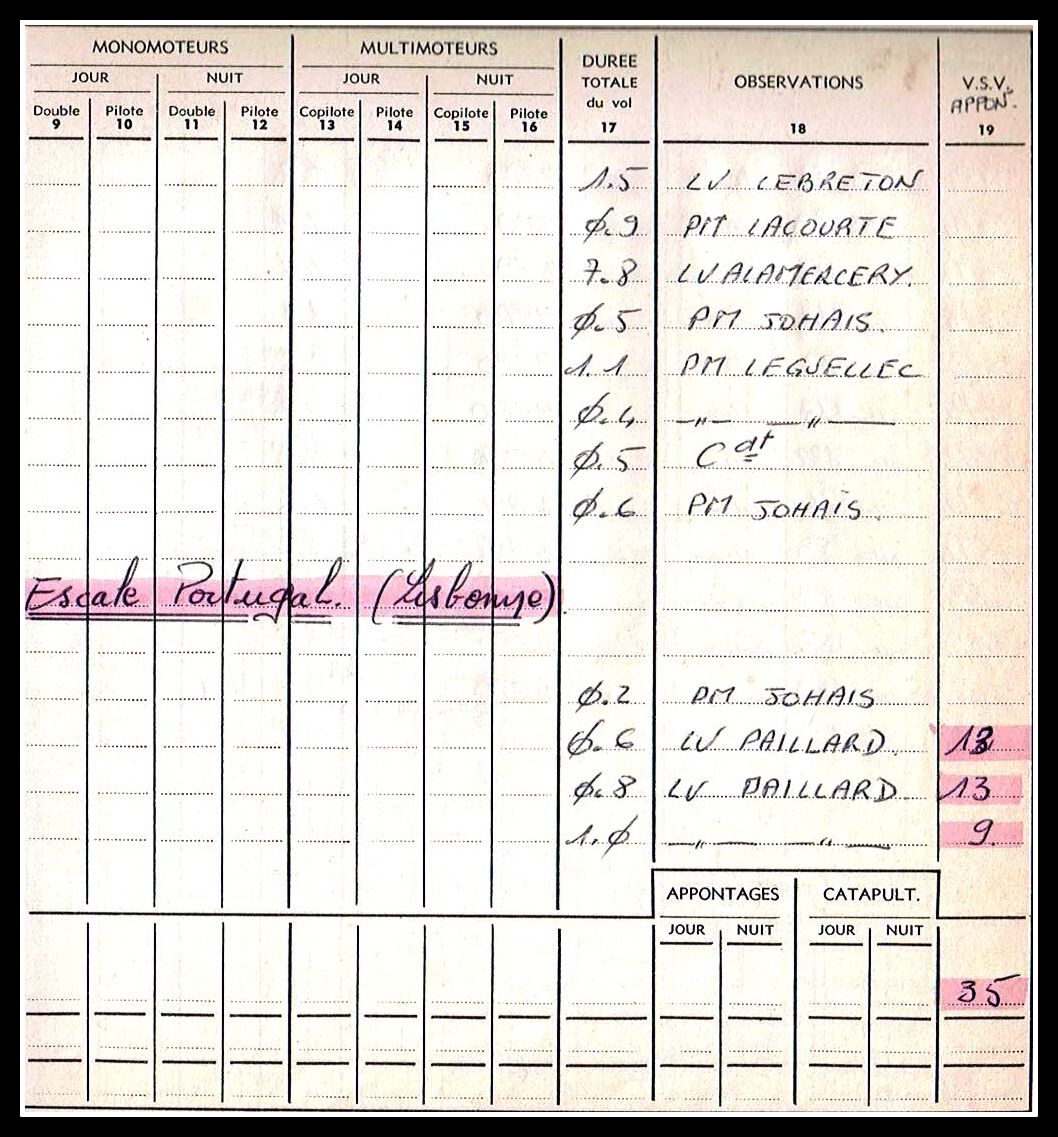 MONOMOTEURS MULTIMOTEURS DUREE TOTALE du vol OBSERVATIONS V.S.V. APPON.
JOUR NUIT JOUR NUIT
Double Pilote Double Pilote Copilote Pilote Copilote Pilote
9 10 11 12 13 14 15 16 17 18 19
1.5 LV LEBRETON
Ø.9 PM LACOURTE
7.8 LV ALAMERCERY.
Ø.5 PM JOHAIS.
1.1 PM LEGUELLEC
Ø.4 —"— —"—
Ø.5 Cdt
Ø.6 PM JOHAIS.
Escale Portugal. (Lisbonne).
Ø.2 PM JOHAIS
Ø.6 LV PAILLARD. 13
Ø.8 LV PAILLARD 13
1.Ø —"— —"— 9.
APPONTAGES CATAPULT.
JOUR NUIT JOUR NUIT
35